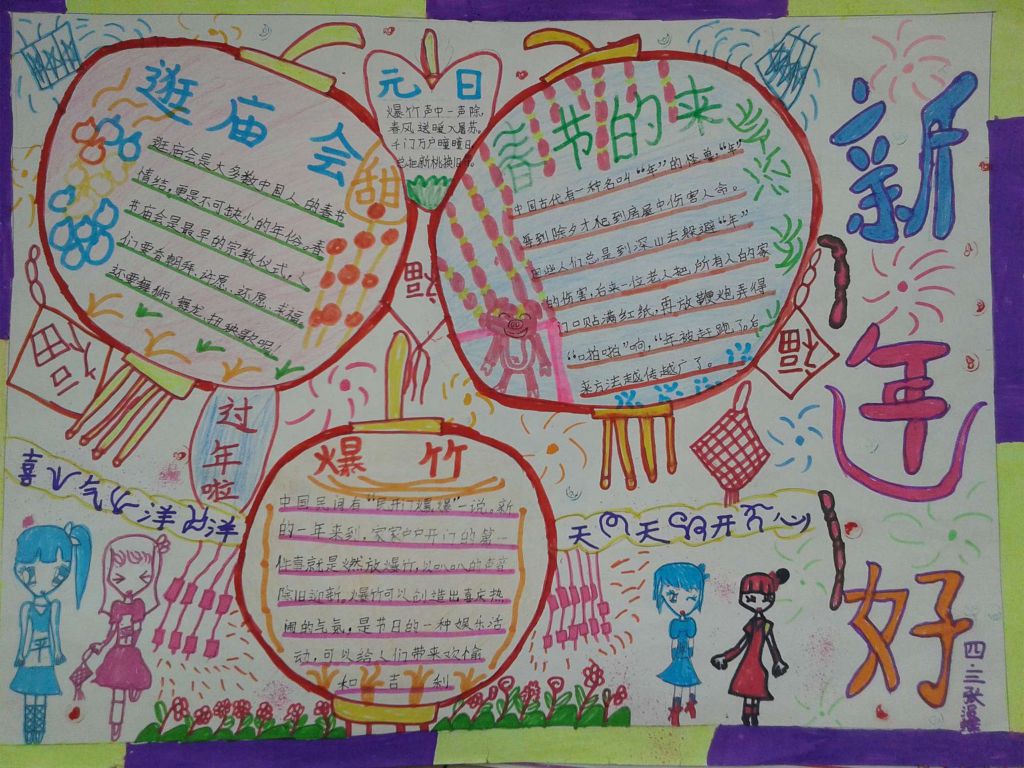 逛庙会
逛庙会是大多数中国人的春节
情结,更是不可缺少的年俗。春
节庙会是最早的宗教仪式,人
们要香朝拜,许愿、还愿、求福。
还要舞狮,舞龙,扭秧歌呢!
甜
元日
爆竹声中一声除,
春风送暖入屠苏。
千门万户曈曈日,
总把新桃换旧符。
春节的来
中国古代有一种名叫“年”的怪兽,“年”
每到除夕才爬到房屋中伤害人命。
因此人们总是到深山去躲避“年”
的伤害,后来一位老人把所有人的家
门口贴满红纸,再放鞭炮弄得
“啪啪”响,“年被赶跑了。后
来方法越传越广了。
福
福
福
过年啦
爆竹
中国民间有“民开门爆爆”一说,新
的一年来到,家家户户开门的第一
件事就是燃放爆竹,以
除旧迎新。爆竹可以创造出喜庆热
闹的气氛,是节日的一种娱乐活
动,可以给人们带来欢愉
和吉利
喜气洋洋
天天开心
新年好
四·三张